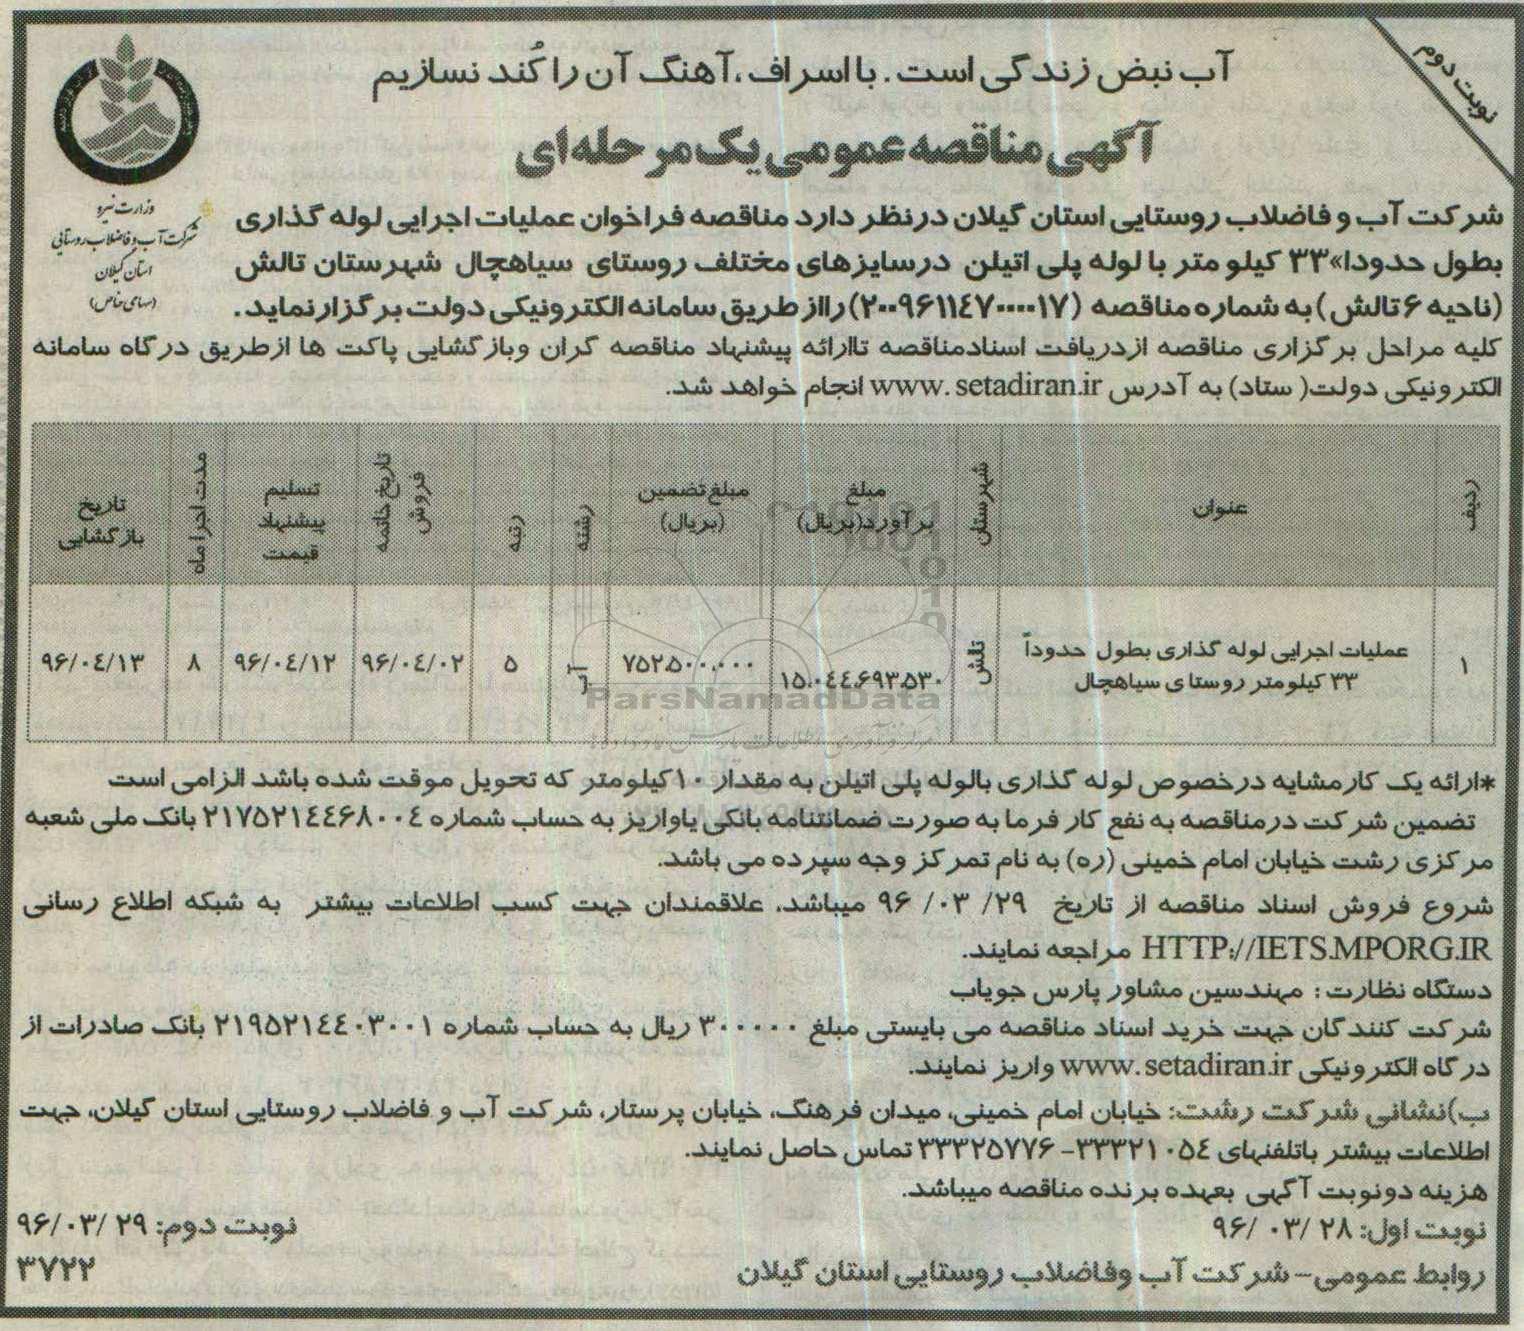 نوبت دوم
آب نبض زندگی است . با اسراف ،آهنگ آن را کُند نسازیم
آگهی مناقصه عمومی یک مرحله ای
وزارت نیرو
شرکت آب و فاضلاب روستایی
استان گیلان
(سهامی خاص)
شرکت آب و فاضلاب روستایی استان گیلان درنظر دارد مناقصه فراخوان عملیات اجرایی لوله گذاری
بطول حدودا»۳۳ کیلو متر با لوله پلی اتیلن درسایزهای مختلف روستای سیاهچال شهرستان تالش
(ناحیه ۶ تالش ) به شماره مناقصه (۲۰۰۹۶۱۱۴۷۰۰۰۰۱۷) رااز طریق سامانه الکترونیکی دولت برگزار نماید .
کلیه مراحل برگزاری مناقصه ازدریافت اسنادمناقصه تاارائه پیشنهاد مناقصه گران وبازگشایی پاکت ها ازطریق درگاه سامانه
الکترونیکی دولت( ستاد) به آدرس www. setadiran.ir انجام خواهد شد.
ردیف عنوان شهرستان مبلغ برآورد(بریال) مبلغ تضمین (بریال) رشته رتبه تاریخ خاتمه فروش تسلیم پیشنهاد قیمت مدت اجرا ماه تاریخ بازگشایی
۱ عملیات اجرایی لوله گذاری بطول حدوداً ۳۳ کیلومتر روستای سیاهچال تالش ۱۵،۰۴۴،۶۹۳،۵۳۰ ۷۵۲،۵۰۰،۰۰۰ آب ۵ ۹۶/۰۴/۰۲ ۹۶/۰۴/۱۲ ۸ ۹۶/۰۴/۱۳
ParsNamadData
*ارائه یک کارمشابه درخصوص لوله گذاری بالوله پلی اتیلن به مقدار ۱۰کیلومتر که تحویل موقت شده باشد الزامی است
تضمین شرکت درمناقصه به نفع کار فرما به صورت ضمانتنامه بانکی یاواریز به حساب شماره ۲۱۷۵۲۱۴۴۶۸۰۰۴ بانک ملی شعبه
مرکزی رشت خیابان امام خمینی (ره) به نام تمرکز وجه سپرده می باشد.
شروع فروش اسناد مناقصه از تاریخ ۲۹/ ۰۳/ ۹۶ میباشد. علاقمندان جهت کسب اطلاعات بیشتر به شبکه اطلاع رسانی
HTTP://IETS.MPORG.IR مراجعه نمایند.
دستگاه نظارت : مهندسین مشاور پارس جویاب
شرکت کنندگان جهت خرید اسناد مناقصه می بایستی مبلغ ۳۰۰۰۰۰ ریال به حساب شماره ۲۱۹۵۲۱۴۴۰۳۰۰۱ بانک صادرات از
درگاه الکترونیکی www. setadiran.ir واریز نمایند.
ب)نشانی شرکت رشت: خیابان امام خمینی، میدان فرهنگ، خیابان پرستار، شرکت آب و فاضلاب روستایی استان گیلان، جهت
اطلاعات بیشتر باتلفنهای ۳۳۳۲۱۰۵۴- ۳۳۳۲۵۷۷۶ تماس حاصل نمایند.
هزینه دونوبت آگهی بعهده برنده مناقصه میباشد.
نوبت اول: ۲۸ /۰۳ /۹۶
نوبت دوم: ۲۹ /۰۳/ ۹۶
روابط عمومی- شرکت آب وفاضلاب روستایی استان گیلان
۳۷۲۲